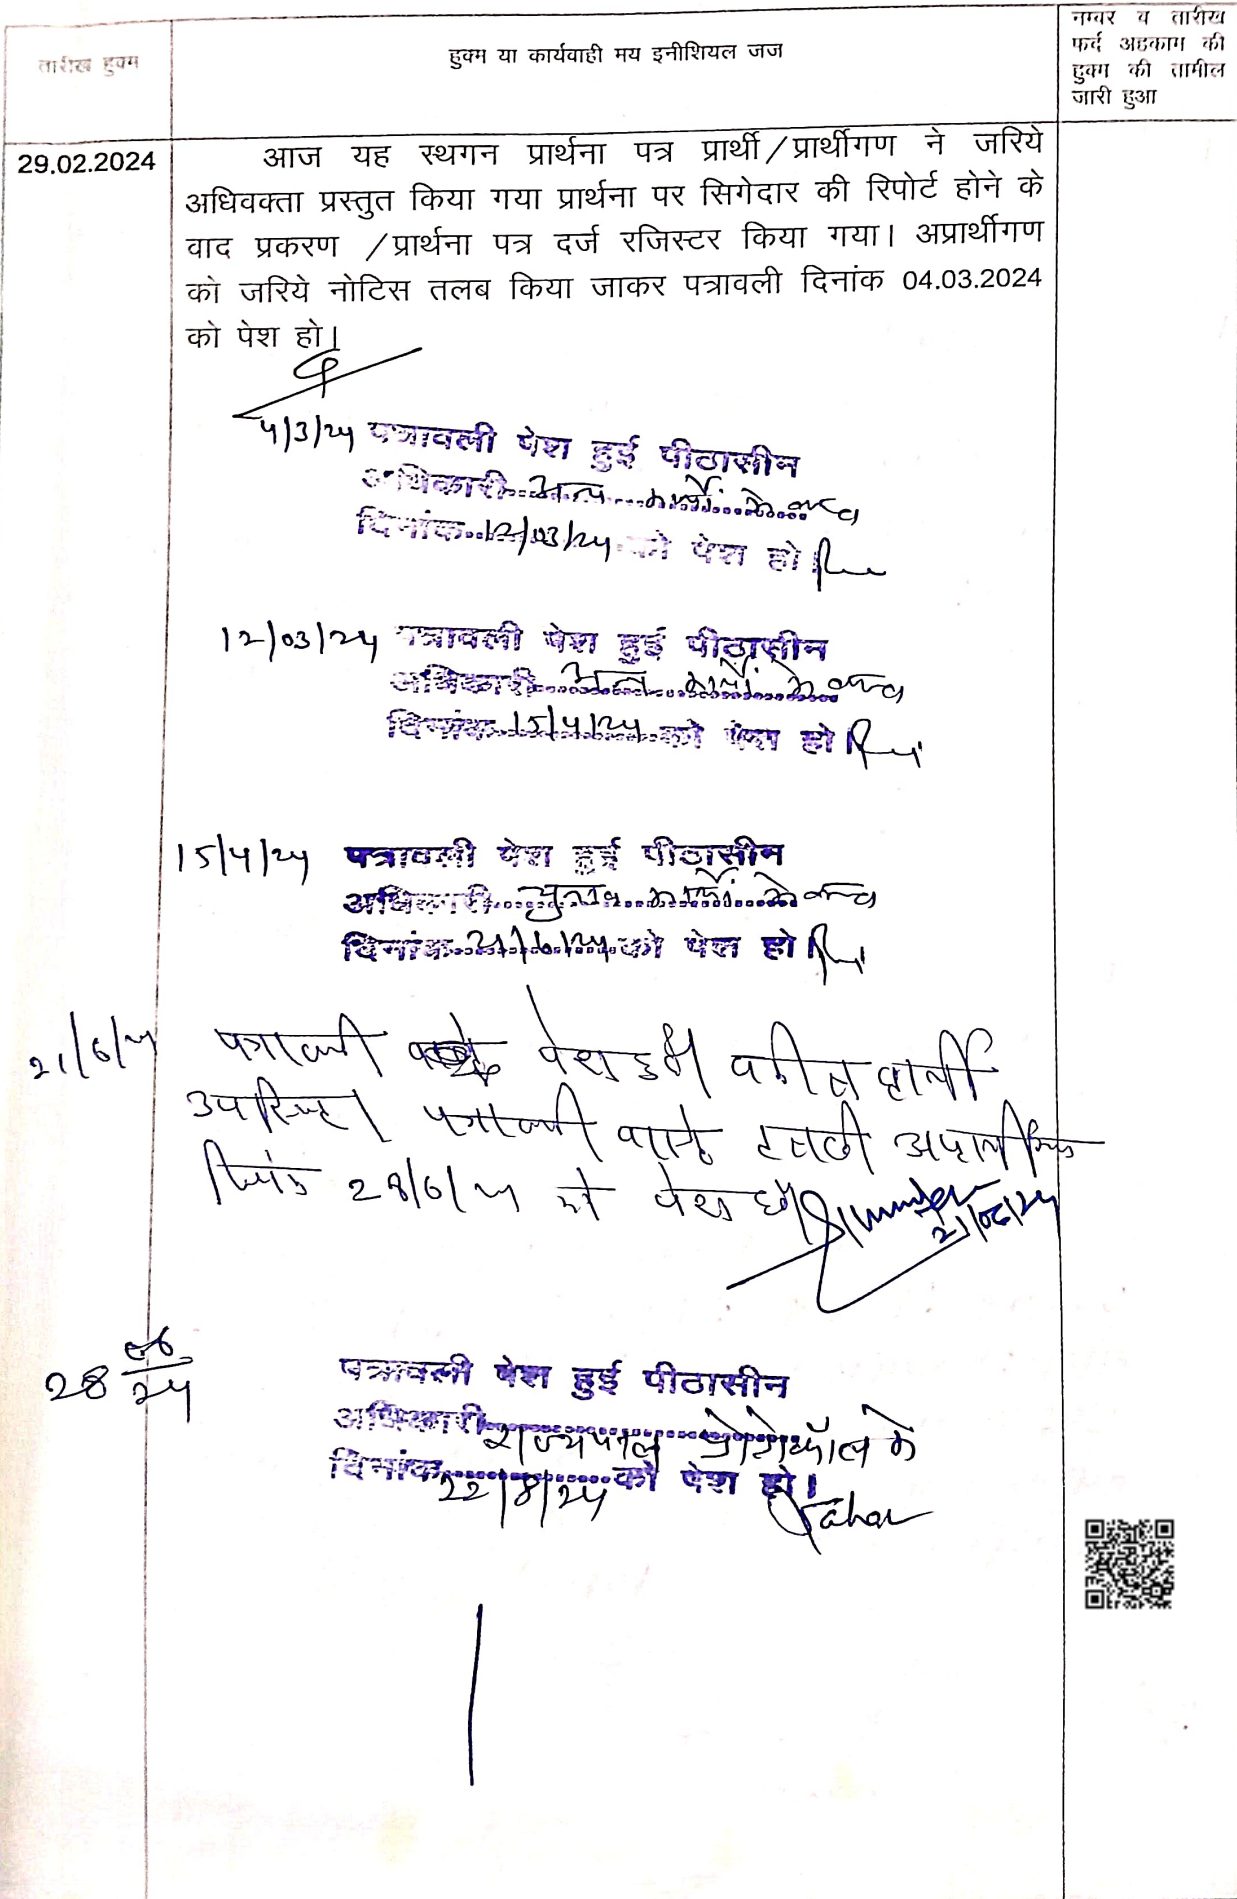 तारीख हुक्म
हुक्म या कार्यवाही मय इनीशियल जज
नम्बर व तारीख
फर्द अहकाम की
हुक्म की तामील
जारी हुआ
29.02.2024
आज यह स्थगन प्रार्थना पत्र प्रार्थी/प्रार्थीगण ने जरिये
अधिवक्ता प्रस्तुत किया गया प्रार्थना पर सिगेदार की रिपोर्ट होने के
वाद प्रकरण /प्रार्थना पत्र दर्ज रजिस्टर किया गया। अप्रार्थीगण
को जरिये नोटिस तलब किया जाकर पत्रावली दिनांक 04.03.2024
को पेश हो।
4/3/24 पत्रावली पेश हुई पीठासीन
अधिकारी अन्य कार्यों में व्यस्त
दिनांक 12/03/24 को पेश हो।
12/03/24 पत्रावली पेश हुई पीठासीन
अधिकारी अन्य कार्यों में व्यस्त
दिनांक 15/4/24 को पेश हो।
15/4/24 पत्रावली पेश हुई पीठासीन
अधिकारी चुनाव कार्यों में व्यस्त
दिनांक 21/6/24 को पेश हो।
21/6/24 पत्रावली पेश हुई वकील प्रार्थी
उपस्थित। पत्रावली वास्ते तलबी अप्रार्थीगण
दिनांक 28/6/24 को पेश हो।
21/06/24
28 06/24
पत्रावली पेश हुई पीठासीन
अधिकारी राज्यपाल प्रोटोकॉल में
दिनांक 22/8/24 को पेश हो।